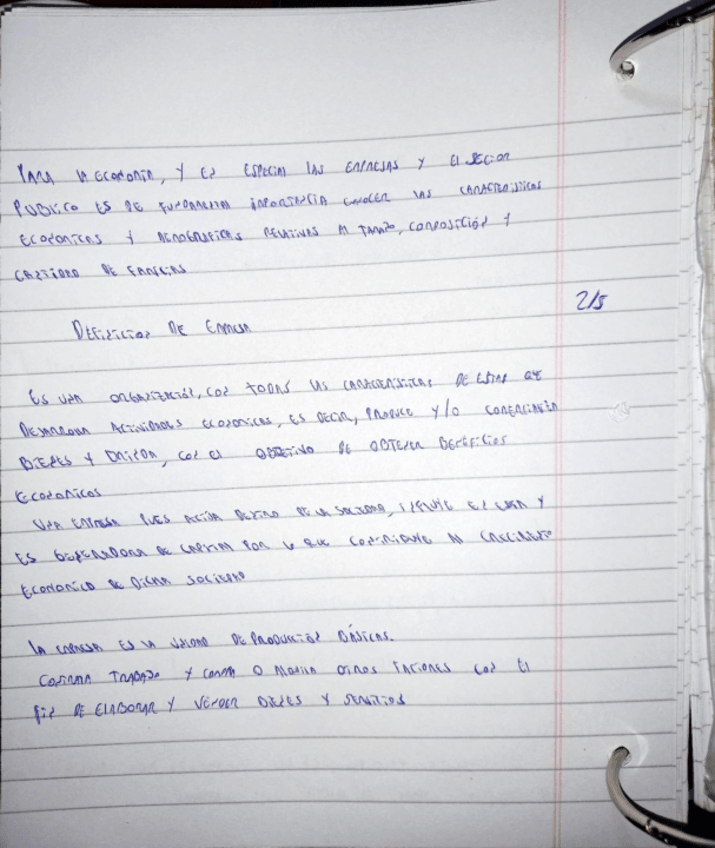 PARA LA ECONOMIA, Y EN ESPECIAL LAS EMPRESAS Y EL SECTOR
PUBLICO ES DE FUNDAMENTAL IMPORTANCIA CONOCER LAS CARACTERISTICAS
ECONOMICAS Y DEMOGRAFICAS RELATIVAS AL TAMAÑO, COMPOSICIÓN Y
CANTIDAD DE FAMILIAS
2/5
DEFINICION DE EMPRESA
ES UNA ORGANIZACIÓN, CON TODAS LAS CARACTERISTICAS DE ESTAS QUE
DESARROLLA ACTIVIDADES ECONOMICAS, ES DECIR, PRODUCE Y/O COMERCIALIZA
BIENES Y CON EL OBJETIVO DE OBTENER BENEFICIOS
ECONOMICOS
UNA EMPRESA PUES ACTUA DENTRO DE LA SOCIEDAD, INFLUYE EN ELLA Y
ES GENERADORA DE POR LO QUE CONTRIBUYE AL CRECIMIENTO
ECONOMICO DE DICHA SOCIEDAD
LA EMPRESA ES LA UNIDAD DE PRODUCCIÓN BÁSICAS.
CONTRATA TRABAJO Y COMPRA O ALQUILA OTROS FACTORES CON EL
FIN DE ELABORAR Y VENDER BIENES Y SERVICIOS